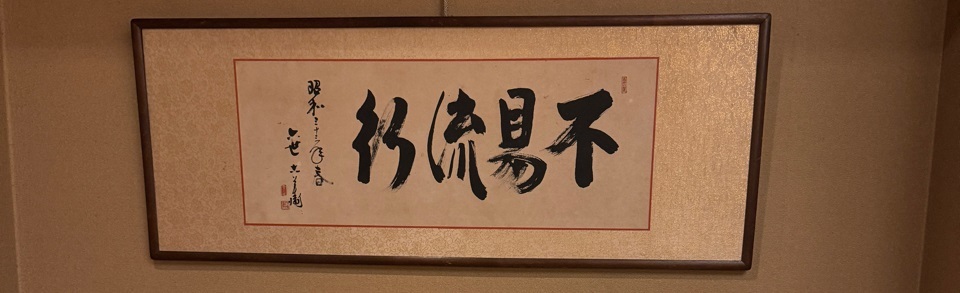 不易流行
昭和三十三年春
六世